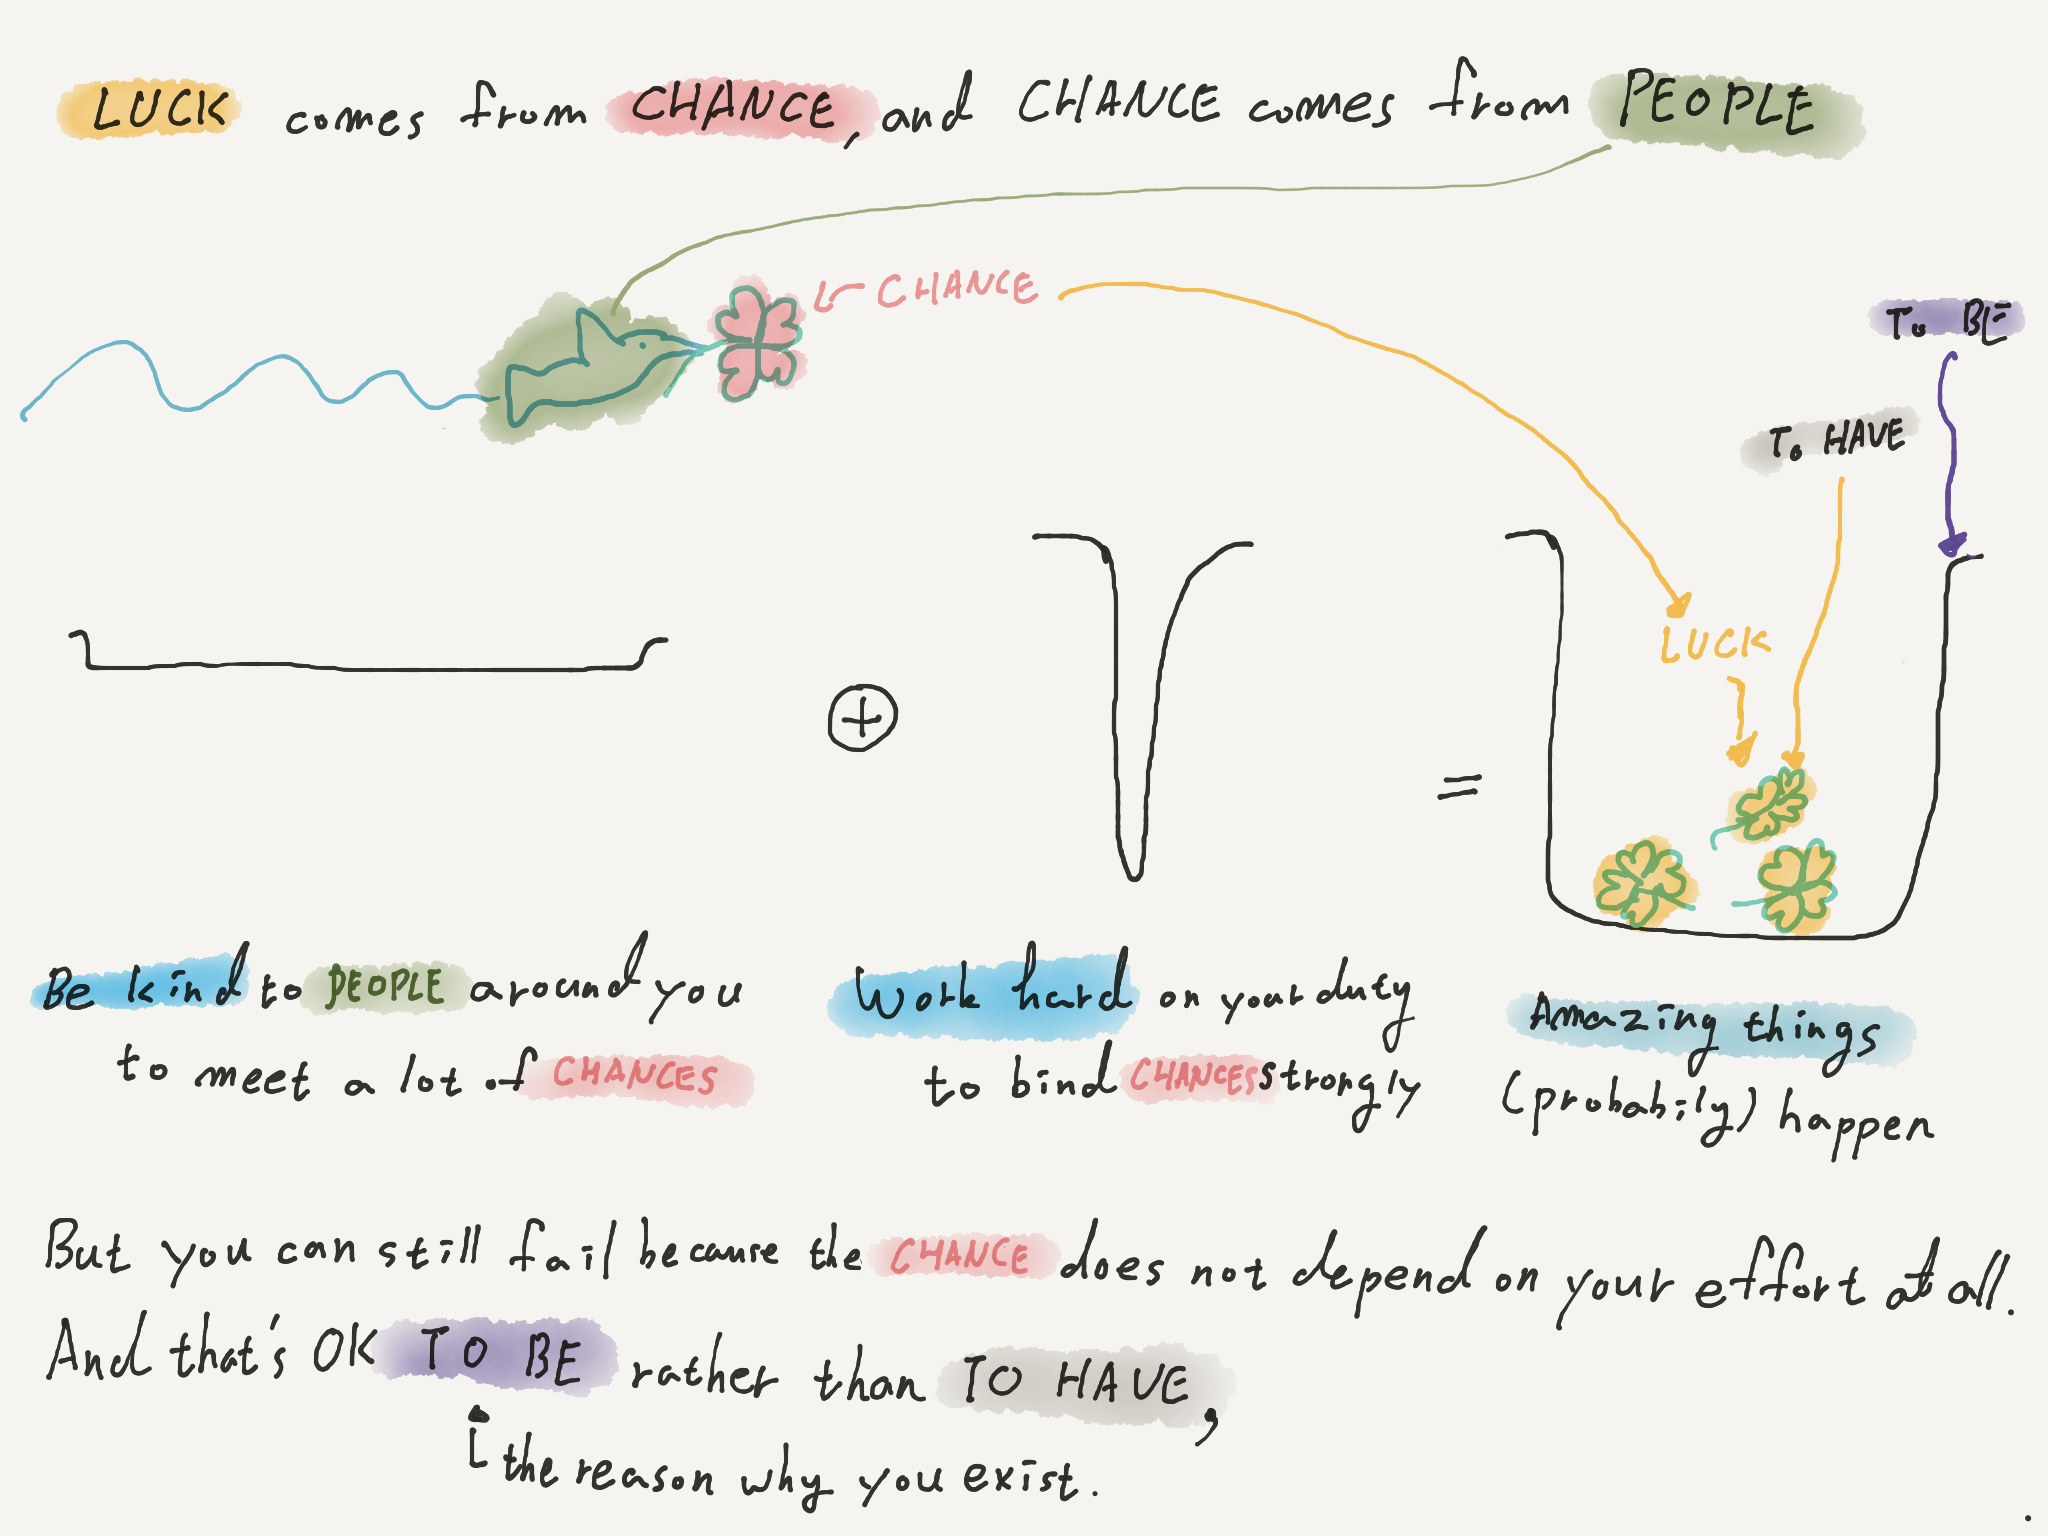 LUCK comes from CHANCE, and CHANCE comes from PEOPLE
CHANCE
TO BE
TO HAVE
LUCK
+
=
Be kind to PEOPLE around you
to meet a lot of CHANCES
Work hard on your duty
to bind CHANCES strongly
Amazing things
(probabily) happen
But you can still fail because the CHANCE does not depend on your effort at all.
And that's OK TO BE rather than TO HAVE,
the reason why you exist.